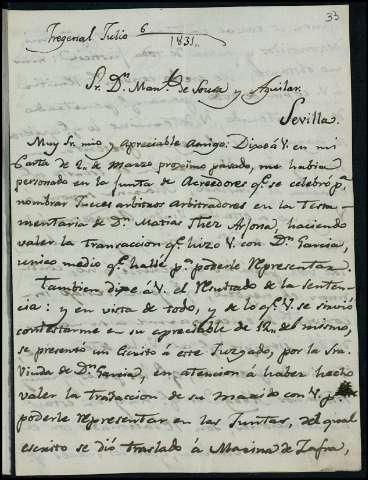 33
Fregenal Julio 6
1831..
Sr. Dn. Manl. de Souza y Aguilar.
Sevilla.
Muy Sr. mio y apreciable amigo: Dixe á V. en mi
Carta de 2,, de Marzo proximo pasado, me habia
personado en la Junta de Acreedores qe. se celebró pa.
nombrar Jueces arbitros arbitradores en la Testa-
mentaria de Dn. Matias Thez Arjona, haciendo
valer la transaccion qe. hizo V. con Dn. Garcia,
unico medio qe. hallé pa. poderle representar.
Tambien dixe á V. el resultado de la senten-
cia: y en vista de todo, y de lo qe. V. se sirvió
contestarme en su apreciable de 12,, del mismo,
se presentó un escrito á este Juzgado, por la Sra.
Viuda de Dn. Garcia, en atencion á haber hecho
valer la tradaccion de su marido con V. pa.
poderle representar en las Juntas, del qual
escrito se dió traslado á Marina de Zafra,